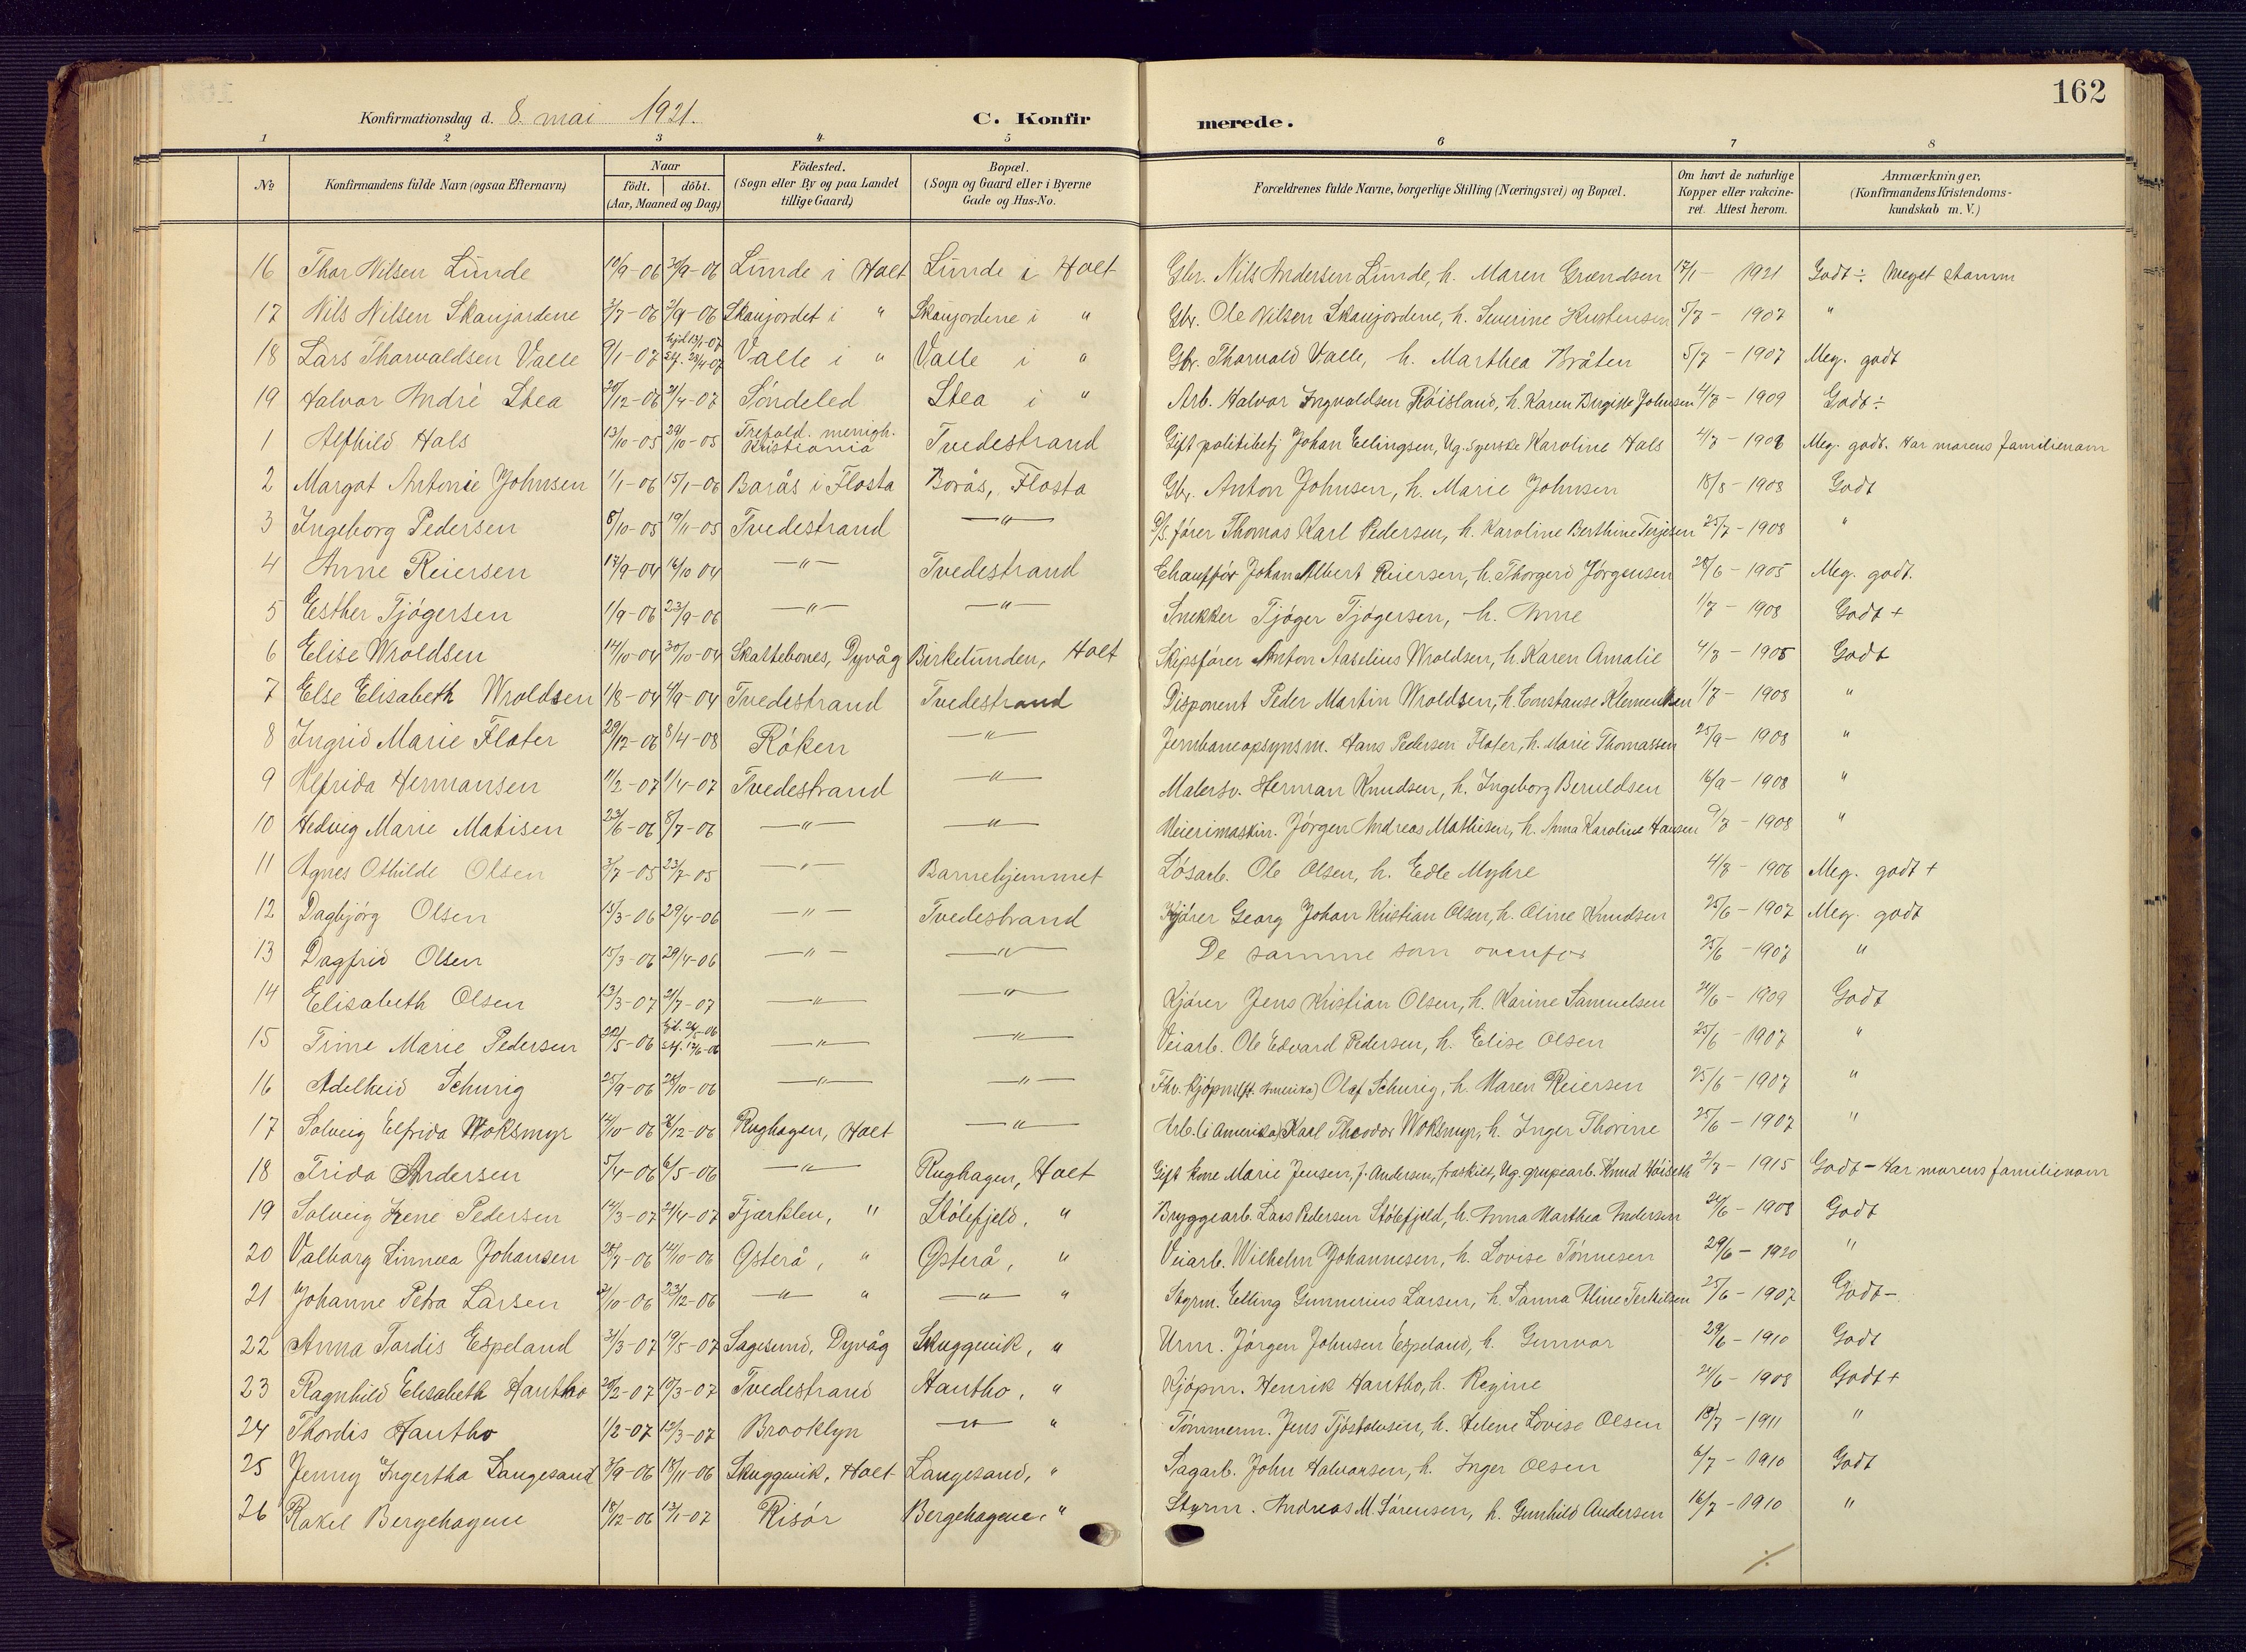 162
Konfirmationsdag d. 8. mai 1921.
C. Konfirmerede.
1 2 3 4 5 6 7 8
No
Konfirmandens fulde Navn (ogsaa Efternavn)
Naar
födt. | döbt.
(Aar, Maaned og Dag)
Födested.
(Sogn eller By og paa Landet
tillige Gaard)
Bopæl.
(Sogn og Gaard eller i Byerne
Gade og Hus-No.
Forældrenes fulde Navne, borgerlige Stilling (Næringsvei) og Bopæl.
Om havt de naturlige
Kopper eller vakcine-
ret. Attest herom.
Anmærkninger,
(Konfirmandens Kristendoms-
kundskab m. V.)
16 Thor Nilsen Lunde 19/9-06 30/9-06 Lunde i Holt Lunde i Holt Gbr. Nils Andersen Lunde, h. Maren Grændsen 17/1 - 1921 Godt ÷ Meget stamm
17 Nils Nilsen Skaujordene 3/7-06 2/9-06 Skaujordet i " Skaujordene i " Gbr. Ole Nilsen Skaujordene, h. Severine Kristensen 5/7 - 1907 "
18 Lars Thorvaldsen Valle 9/1-07 hjd 13/1-07 stf. 28/4-07 Valle i " Valle i " Gbr. Thorvald Valle, h. Marthea Bråten 5/7 - 1907 Meg. godt
19 Halvor André Stea 20/12-06 21/4-07 Söndeled Stea i " Arb. Halvor Ingvaldsen Röisland, h. Karen Birgitte Johnsen 4/8 - 1909 Godt ÷
1 Alfhild Hals 13/10-05 29/10-05 Trefold. menigh. Kristiania Tvedestrand Gift politibetj Johan Ellingsen, Ug. syerske Karoline Hals 4/7 - 1908 Meg. godt. Har morens familienavn
2 Margot Antonie Johnsen 1/1-06 15/1-06 Borås i Flosta Borås, Flosta Gbr. Anton Johnsen, h. Marie Johnsen 18/8 - 1908 Godt
3 Ingeborg Pedersen 8/10-05 19/11-05 Tvedestrand —"— D/S. förer Thomas Karl Pedersen, h. Karoline Berthine Terjesen 25/7 - 1908 "
4 Anne Reiersen 17/9-04 16/10 04 —"— Tvedestrand Chaufför Johan Albert Reiersen, h. Thorgerd Jörgensen 28/6 - 1905 Meg. godt.
5 Esther Tjögersen 1/9-06 23/9-06 —"— —"— Snekker Tjöger Tjögersen, h. Anne 1/7 - 1908 Godt +
6 Elise Wroldsen 14/10-04 30/10-04 Skattebones, Dyvåg Birkelunden, Holt Skipsförer Anton Aaselius Wroldsen, h. Karen Amalie 4/8 - 1905 Godt
7 Else Elisabeth Wroldsen 1/8-04 4/9-04 Tvedestrand Tvedestrand Disponent Peder Martin Wroldsen, h. Constanse Klementsen 1/7 - 1908 "
8 Ingrid Marie Flater 29/12-06 8/4-08 Röken —"— Jernbaneopsynsm. Hans Pedersen Flater, h. Marie Thomassen 25/9 - 1908 "
9 Alfrida Hermansen 11/2-07 1/4-07 Tvedestrand —"— Malersv. Herman Knudsen, h. Ingeborg Beruldsen 16/9 - 1908 "
10 Hedvig Marie Matisen 23/6-06 8/7-06 —"— —"— Meierimaskin. Jörgen Andreas Mathisen, h. Anna Karoline Hansen 9/7 - 1908 "
11 Agnes Othilde Olsen 3/7-05 23/7-05 —"— Barnehjemmet Lösarb. Ole Olsen, h. Edle Myhre 4/8 - 1906 Meg. godt +
12 Dagbjörg Olsen 15/3-06 29/4-06 —"— Tvedestrand Kjörer Georg Johan Kristian Olsen, h. Oline Knudsen 25/6 - 1907 Meg. godt
13 Dagfrid Olsen 15/3-06 29/4-06 —"— —"— De samme som ovenfor 25/6 - 1907 "
14 Elisabeth Olsen 13/3-07 21/7-07 —"— —"— Kjörer Jens Kristian Olsen, h. Karine Samuelsen 21/6 - 1909 Godt
15 Trine Marie Pedersen 22/5-06 hjd. 24/5-06 stf. 17/6-06 —"— —"— Veiarb. Ole Edvard Pedersen, h. Elise Olsen 25/6 - 1907 "
16 Adelheid Schurig 25/9-06 28/10-06 —"— —"— Fhv. kjöpm. (pt. Amerika) Olaf Schurig, h. Maren Reiersen 25/6 - 1907 "
17 Solveig Elfrida Woksmyr 14/10-06 26/12-06 Rughagen, Holt —"— Arb. (i Amerika) Karl Theodor Woksmyr, h. Inger Thorine 25/6 - 1907 "
18 Frida Andersen 5/4-06 6/5-06 —"— Rughagen, Holt Gift kone Marie Jensen, f. Andersen, fraskilt, Ug. grupearb. Knud Höiseth 2/7 - 1915 Godt - Har morens familienavn
19 Solveig Irene Pedersen 14/3-07 21/4-07 Fjærklev, " Stölefjeld, " Bryggearb. Lars Pedersen Stölefjeld, h. Anna Marthea Andersen 24/6 - 1908 Godt
20 Valborg Linnea Johansen 28/7-06 14/10-06 Østerå, " Østerå, " Veiarb. Wilhelm Johannesen, h. Lovise Tönnesen 29/6 - 1920 "
21 Johanne Petra Larsen 21/10-06 23/12-06 —"— " —"— " Styrm. Elling Gunnerius Larsen, h. Sanna Aline Terkilsen 25/6 - 1907 Godt -
22 Anna Tordis Espeland 31/3-07 19/5-07 Sagesund, Dyvåg Skuggevik, " Urm. Jörgen Johnsen Espeland, h. Gunvor 29/6 - 1910 Godt
23 Ragnhild Elisabeth Hantho 20/2-07 10/3-07 Tvedestrand Hantho, " Kjöpm. Henrik Hantho, h. Regine 24/6 - 1908 Godt +
24 Thordis Hantho 1/2-07 10/3-07 Brooklyn —"— " Tömmerm. Jens Tjöstolvsen, h. Helene Lovise Olsen 18/7 - 1911 "
25 Jenny Ingertha Langesand 3/9-06 18/11-06 Skuggevik, Holt Langesand, " Sagarb. John Halvorsen, h. Inger Olsen 6/7 - 1910 Godt
26 Rakel Bergehagene 18/12-06 13/1-07 Risör Bergehagene, " Styrm. Andreas M. Sörensen, h. Gunhild Andersen 16/7 - 1910 "